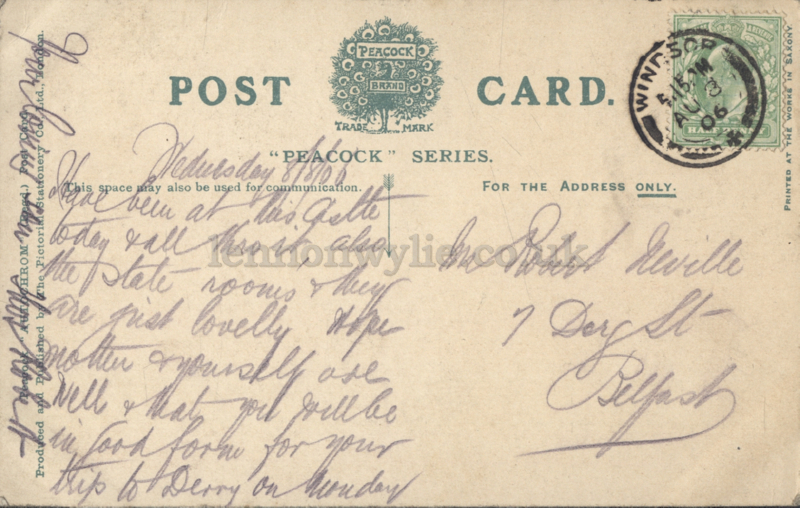 PEACOCK
BRAND
TRADE MARK
POST CARD.
"PEACOCK" SERIES.
This space may also be used for communication.
FOR THE ADDRESS ONLY.
WINDSOR
5.15PM
AU 8
06
HALFPENNY
PRINTED AT THE WORKS IN SAXONY.
Post Card.
Produced and Published by The Pictorial Stationery Co., Ltd., London.
Wednesday 8/8/06
Have been at this Castle
today & all thro it also
the state rooms & they
are just lovely Hope
mother & yourself are
well & that you will be
in good form for your
trip to Derry on Monday
Mr Robert Neville
7 Derg St
Belfast
lennonwylie.co.uk